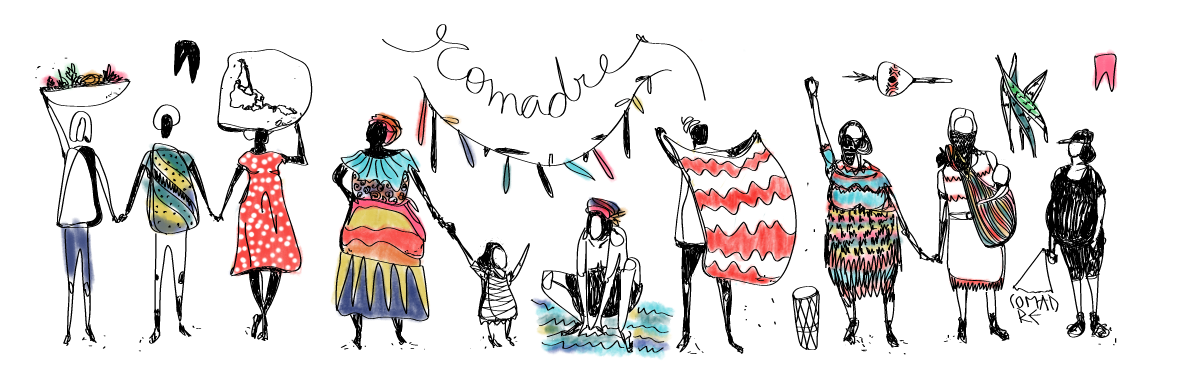 Comadre
COMAD
RE